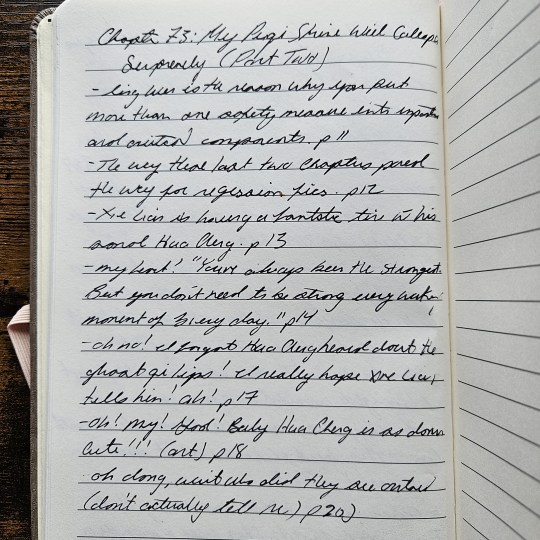 Chapter 73: My Puqi Shrine Will Collapse
Serpresely (Part Two)
- Ling Wen is the reason why you put
more than one safety measure into important
and critical components. p 11
- The way these last two chapters paved
the way for regression fics. p12
- Xie Lian is having a fantastic time w his
small Hua Cheng. p 13
- my heart! "You've always been the strongest.
But you don't need to be strong every waking
moment of every day." p14
- oh no! I forgot Hua Cheng heard about the
ghost qi lips! I really hope Xie Lian
tells him! ah! p 17
- oh! my! god! Baby Hua Cheng is so damn
cute!!! (art) p 18
oh dang, who did they see outside
(don't actually tell me) p 20